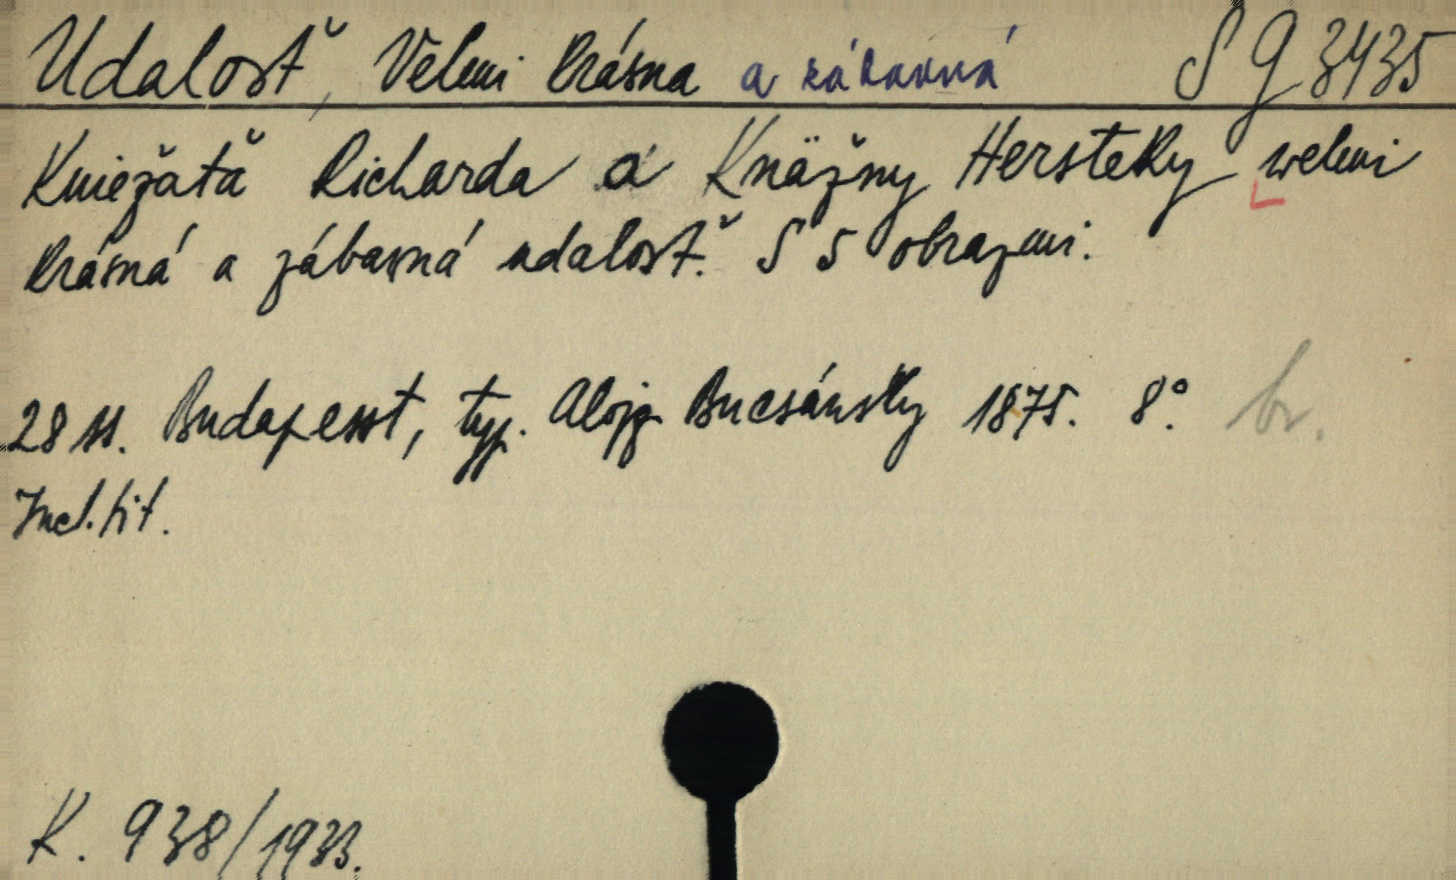 Udalosť, Velmi krásna a zábavná SG 3435
Kniežaťa Richarda a Knäžny Hersteky welmi
krásná a zábavná udalosť. S 5 obrazmi.
28 ss. Budapesst, typ. Alojz Bucsánsky 1875. 8°. br.
Incl. tit.
K. 938/1933.